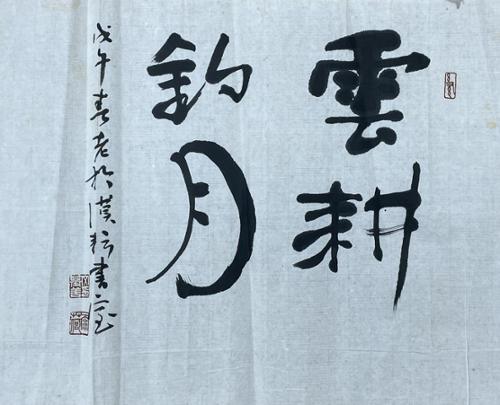 雲耕
釣月
戊午春老於漢耘書室